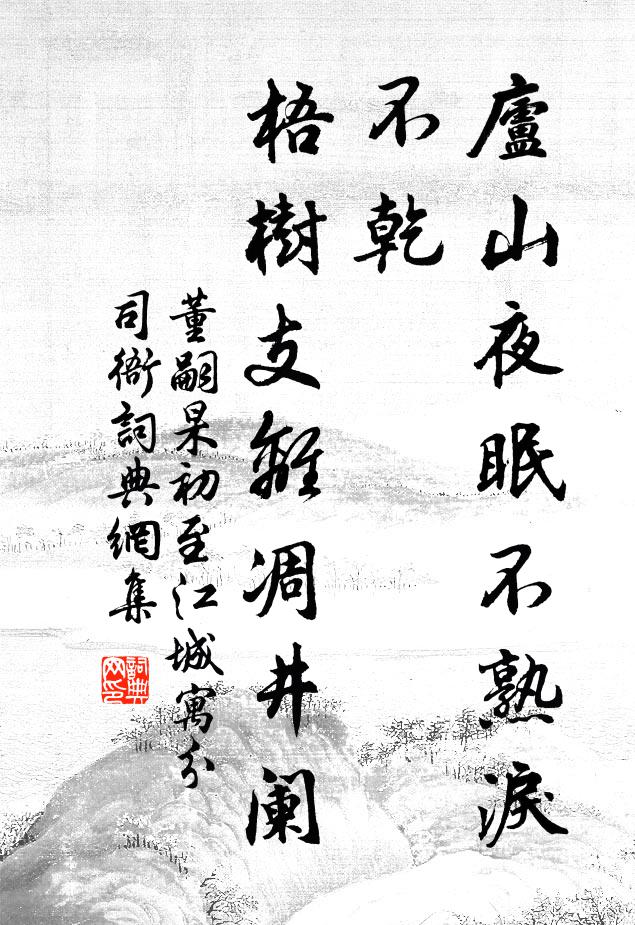 廬山夜眠不熟淚
不乾
梧樹支離凋井闌
董嗣杲初至江城寓分
司衙詞典網集
詞典
网印